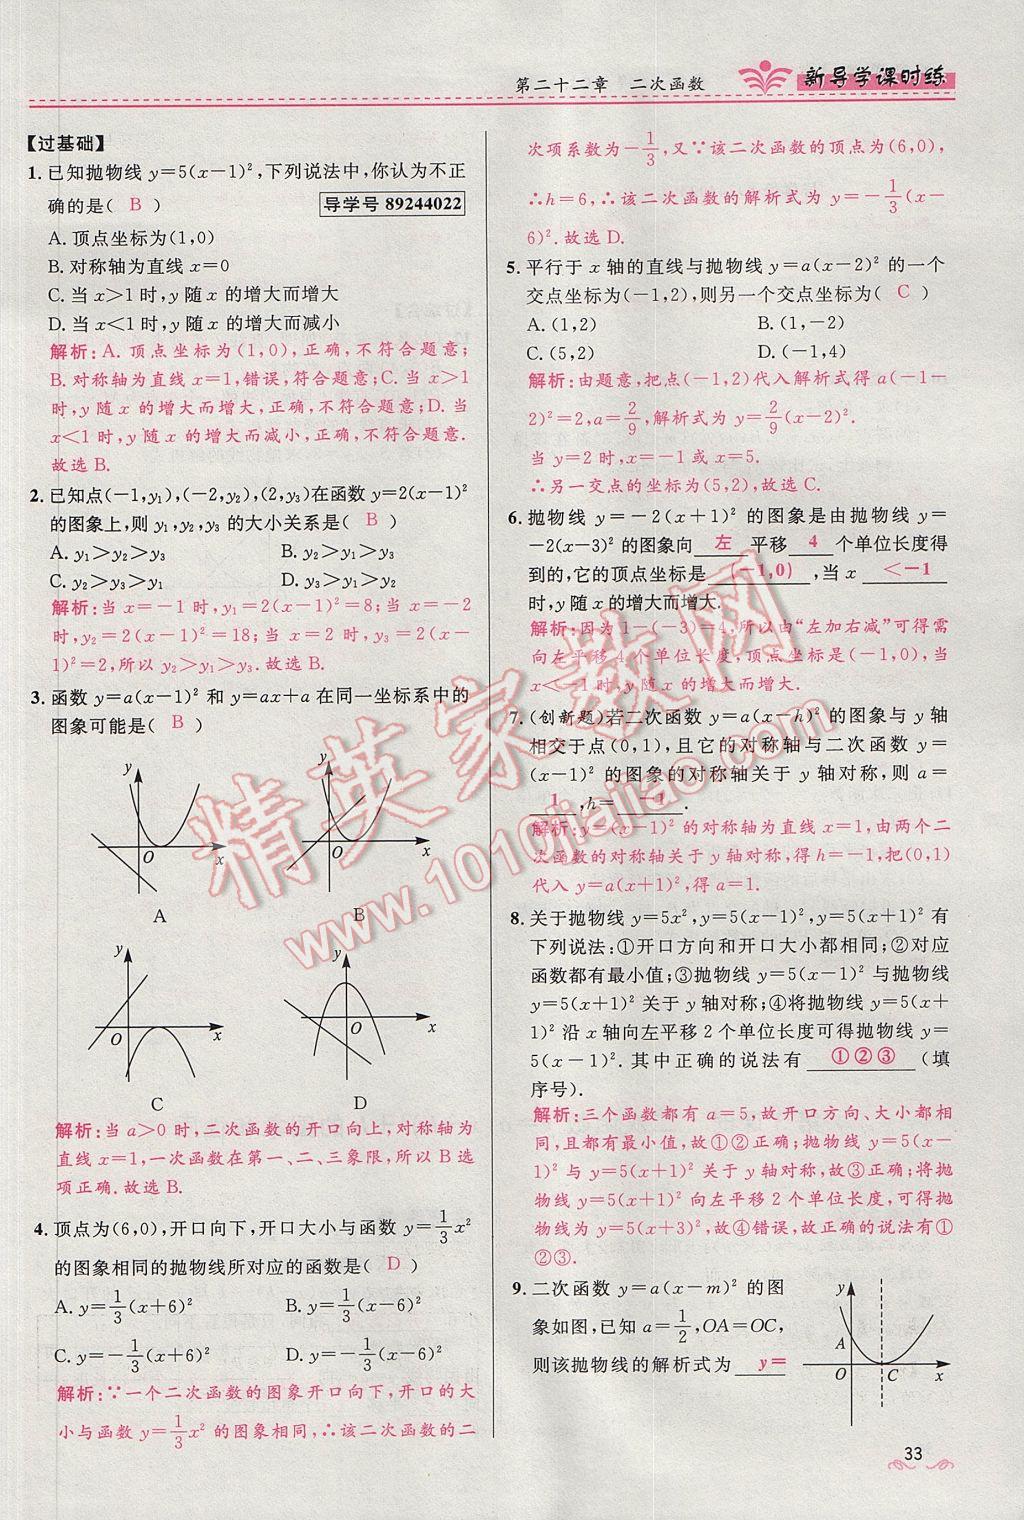 第二十二章 二次函数
新导学课时练
【过基础】
1. 已知抛物线 y=5(x-1)²,下列说法中,你认为不正
确的是( B )
导学号 89244022
A. 顶点坐标为(1,0)
B. 对称轴为直线 x=0
C. 当 x>1 时,y 随 x 的增大而增大
D. 当 x<1 时,y 随 x 的增大而减小
解析:A. 顶点坐标为(1,0),正确,不符合题意;
B. 对称轴为直线 x=1,错误,符合题意;C. 当 x>1
时,y 随 x 的增大而增大,正确,不符合题意;D. 当
x<1 时,y 随 x 的增大而减小,正确,不符合题意.
故选 B.
2. 已知点(-1,y₁),(-2,y₂),(2,y₃)在函数 y=2(x-1)²
的图象上,则 y₁,y₂,y₃ 的大小关系是( B )
A. y₁>y₂>y₃ B. y₂>y₁>y₃
C. y₂>y₃>y₁ D. y₃>y₁>y₂
解析:当 x=-1 时,y₁=2(x-1)²=8;当 x=-2
时,y₂=2(x-1)²=18;当 x=2 时,y₃=2(x-
1)²=2,所以 y₂>y₁>y₃. 故选 B.
3. 函数 y=a(x-1)² 和 y=ax+a 在同一坐标系中的
图象可能是( B )
y y
O x O x
A B
y y
O x O x
C D
解析:当 a>0 时,二次函数的开口向上,对称轴为
直线 x=1,一次函数在第一、二、三象限,所以 B 选
项正确. 故选 B.
4. 顶点为(6,0),开口向下,开口大小与函数 y=1/3x²
的图象相同的抛物线所对应的函数是( D )
A. y=1/3(x+6)² B. y=1/3(x-6)²
C. y=-1/3(x+6)² D. y=-1/3(x-6)²
解析:∵一个二次函数的图象开口向下,开口的大
小与函数 y=1/3x² 的图象相同,∴该二次函数的二
次项系数为-1/3,又∵该二次函数的顶点为(6,0),
∴h=6,∴该二次函数的解析式为 y=-1/3(x-
6)². 故选 D.
5. 平行于 x 轴的直线与抛物线 y=a(x-2)² 的一个
交点坐标为(-1,2),则另一个交点坐标为( C )
A. (1,2) B. (1,-2)
C. (5,2) D. (-1,4)
解析:由题意,把点(-1,2)代入解析式得 a(-1-
2)²=2,a=2/9,解析式为 y=2/9(x-2)².
当 y=2 时,x=-1 或 x=5.
∴另一交点的坐标为(5,2),故选 C.
6. 抛物线 y=-2(x+1)² 的图象是由抛物线 y=
-2(x-3)² 的图象向 左 平移 4 个单位长度得
到的,它的顶点坐标是 (-1,0) ,当 x <-1
时,y 随 x 的增大而增大.
解析:因为 1-(-3)=4,所以由“左加右减”可得需
向左平移 4 个单位长度,顶点坐标是(-1,0),当
x<-1 时,y 随 x 的增大而增大.
7. (创新题)若二次函数 y=a(x-h)² 的图象与 y 轴
相交于点(0,1),且它的对称轴与二次函数 y=
(x-1)² 的图象的对称轴关于 y 轴对称,则 a=
1 ,h= -1 .
解析:y=(x-1)² 的对称轴为直线 x=1,由两个二
次函数的对称轴关于 y 轴对称,得 h=-1,把(0,1)
代入 y=a(x+1)²,得 a=1.
8. 关于抛物线 y=5x²,y=5(x-1)²,y=5(x+1)² 有
下列说法:①开口方向和开口大小都相同;②对应
函数都有最小值;③抛物线 y=5(x-1)² 与抛物线
y=5(x+1)² 关于 y 轴对称;④将抛物线 y=5(x+
1)² 沿 x 轴向左平移 2 个单位长度可得抛物线 y=
5(x-1)². 其中正确的说法有 ①②③ (填
序号).
解析:三个函数都有 a=5,故开口方向、大小都相
同,且都有最小值,故①②正确;抛物线 y=5(x-
1)² 与 y=5(x+1)² 关于 y 轴对称,故③正确;将抛
物线 y=5(x+1)² 向左平移 2 个单位长度,可得抛
物线为 y=5(x+3)²,故④错误,故正确的说法有①
②③.
9. 二次函数 y=a(x-m)² 的图
象如图,已知 a=1/2,OA=OC,
则该抛物线的解析式为 y=
y
A
O C x
33
精英家教网
www.1010jiajiao.com